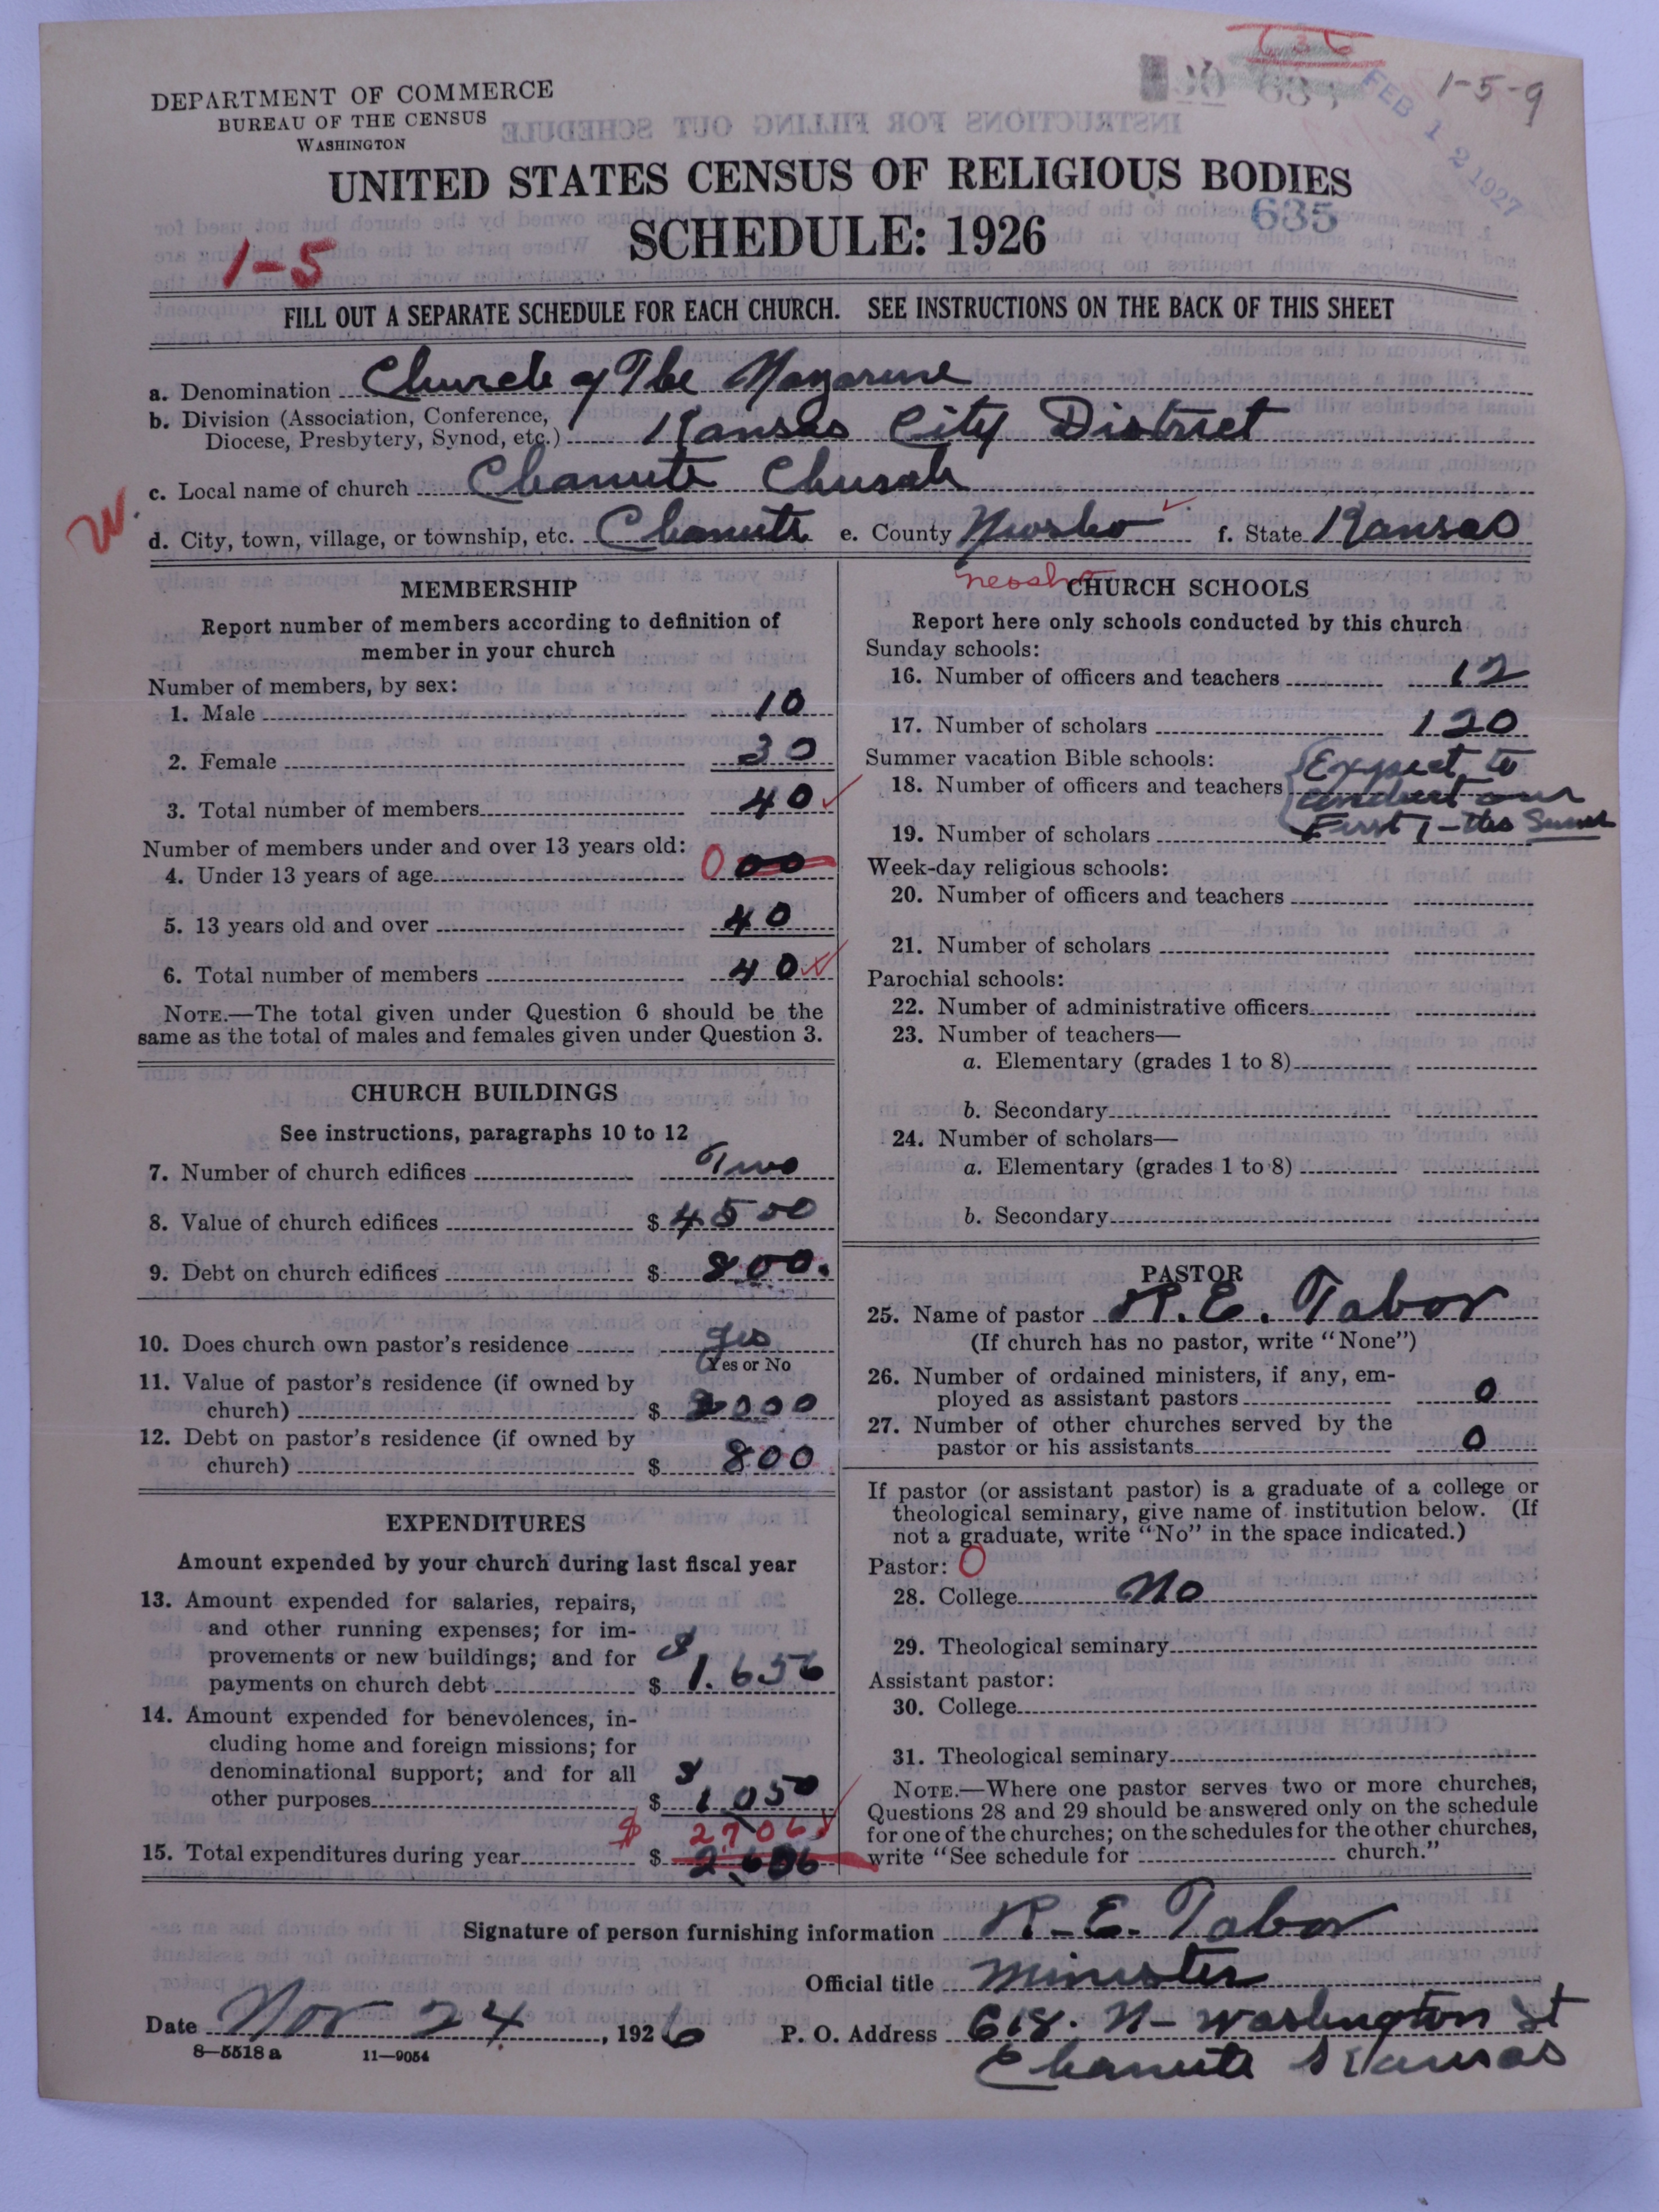 1-5-9
FEB 12 1927
DEPARTMENT OF COMMERCE
BUREAU OF THE CENSUS
WASHINGTON
UNITED STATES CENSUS OF RELIGIOUS BODIES
635
SCHEDULE: 1926
1-5
FILL OUT A SEPARATE SCHEDULE FOR EACH CHURCH. SEE INSTRUCTIONS ON THE BACK OF THIS SHEET
a. Denomination Church of The Nazarene
b. Division (Association, Conference,
Diocese, Presbytery, Synod, etc.) Kansas City District
c. Local name of church Chanute Church
W.
d. City, town, village, or township, etc. Chanute e. County Neosho f. State Kansas
neosho
MEMBERSHIP
Report number of members according to definition of
member in your church
Number of members, by sex:
1. Male 10
2. Female 30
3. Total number of members 40
Number of members under and over 13 years old:
4. Under 13 years of age 0 00
5. 13 years old and over 40
6. Total number of members 40
NOTE.—The total given under Question 6 should be the
same as the total of males and females given under Question 3.
CHURCH BUILDINGS
See instructions, paragraphs 10 to 12
7. Number of church edifices Two
8. Value of church edifices $ 4500
9. Debt on church edifices $ 800.
10. Does church own pastor's residence yes
Yes or No
11. Value of pastor's residence (if owned by
church) $ 2000
12. Debt on pastor's residence (if owned by
church) $ 800
EXPENDITURES
Amount expended by your church during last fiscal year
13. Amount expended for salaries, repairs,
and other running expenses; for im-
provements or new buildings; and for
payments on church debt $ 1.656
14. Amount expended for benevolences, in-
cluding home and foreign missions; for
denominational support; and for all
other purposes $ 1,050
$ 2706
15. Total expenditures during year $ 2,606
CHURCH SCHOOLS
Report here only schools conducted by this church
Sunday schools:
16. Number of officers and teachers 12
17. Number of scholars 120
Summer vacation Bible schools:
Expect to
18. Number of officers and teachers conduct our
19. Number of scholars First 1 - this Summer
Week-day religious schools:
20. Number of officers and teachers
21. Number of scholars
Parochial schools:
22. Number of administrative officers
23. Number of teachers—
a. Elementary (grades 1 to 8)
b. Secondary
24. Number of scholars—
a. Elementary (grades 1 to 8)
b. Secondary
PASTOR
25. Name of pastor R. E. Tabor
(If church has no pastor, write "None")
26. Number of ordained ministers, if any, em-
ployed as assistant pastors 0
27. Number of other churches served by the
pastor or his assistants 0
If pastor (or assistant pastor) is a graduate of a college or
theological seminary, give name of institution below. (If
not a graduate, write "No" in the space indicated.)
Pastor: 0
28. College No
29. Theological seminary
Assistant pastor:
30. College
31. Theological seminary
NOTE.—Where one pastor serves two or more churches,
Questions 28 and 29 should be answered only on the schedule
for one of the churches; on the schedules for the other churches,
write "See schedule for church."
Signature of person furnishing information R-E. Tabor
Official title Minister
Date Nov 24, 1926 P. O. Address 618. N- Washington St
Chanute Kansas
8-5518 a 11-9054